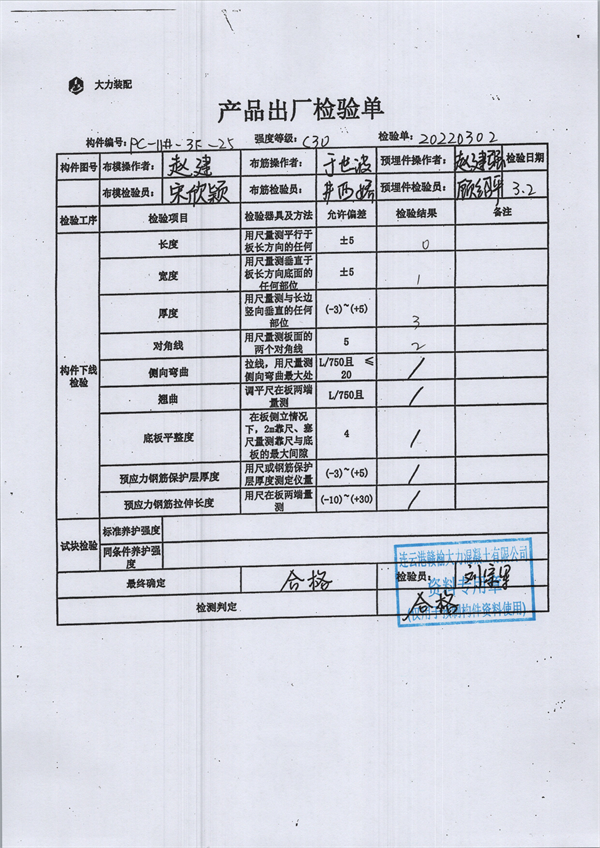 大力装配
产品出厂检验单
构件编号: PC-11#-3F-25 强度等级: C30 检验单: 20220302
构件图号 布模操作者: 赵建 布筋操作者: 于世波 预埋件操作者: 赵建 检验日期
布模检验员: 宋欣颖 布筋检验员: 预埋件检验员: 3.2
检验工序 检验项目 检验器具及方法 允许偏差 检验结果 备注
构件下线检验
长度 用尺量测平行于板长方向的任何 ±5 0
宽度 用尺量测垂直于板长方向底面的任何部位 ±5 1
厚度 用尺量测与长边竖向垂直的任何部位 (-3)~(+5) 3
对角线 用尺量测板面的两个对角线 5 2
侧向弯曲 拉线，用尺量测侧向弯曲最大处 L/750且 ≤20 /
翘曲 调平尺在板两端量测 L/750且 /
底板平整度 在板侧立情况下，2m靠尺、塞尺量测靠尺与底板的最大间隙 4 /
预应力钢筋保护层厚度 用尺或钢筋保护层厚度测定仪量 (-3)~(+5) /
预应力钢筋拉伸长度 用尺在板两端量测 (-10)~(+30) /
试块检验 标准养护强度
同条件养护强度
最终确定 合格 检验员:
检测判定 合格
连云港赣榆大力混凝土有限公司
资料专用章
(仅用于预制构件资料使用)